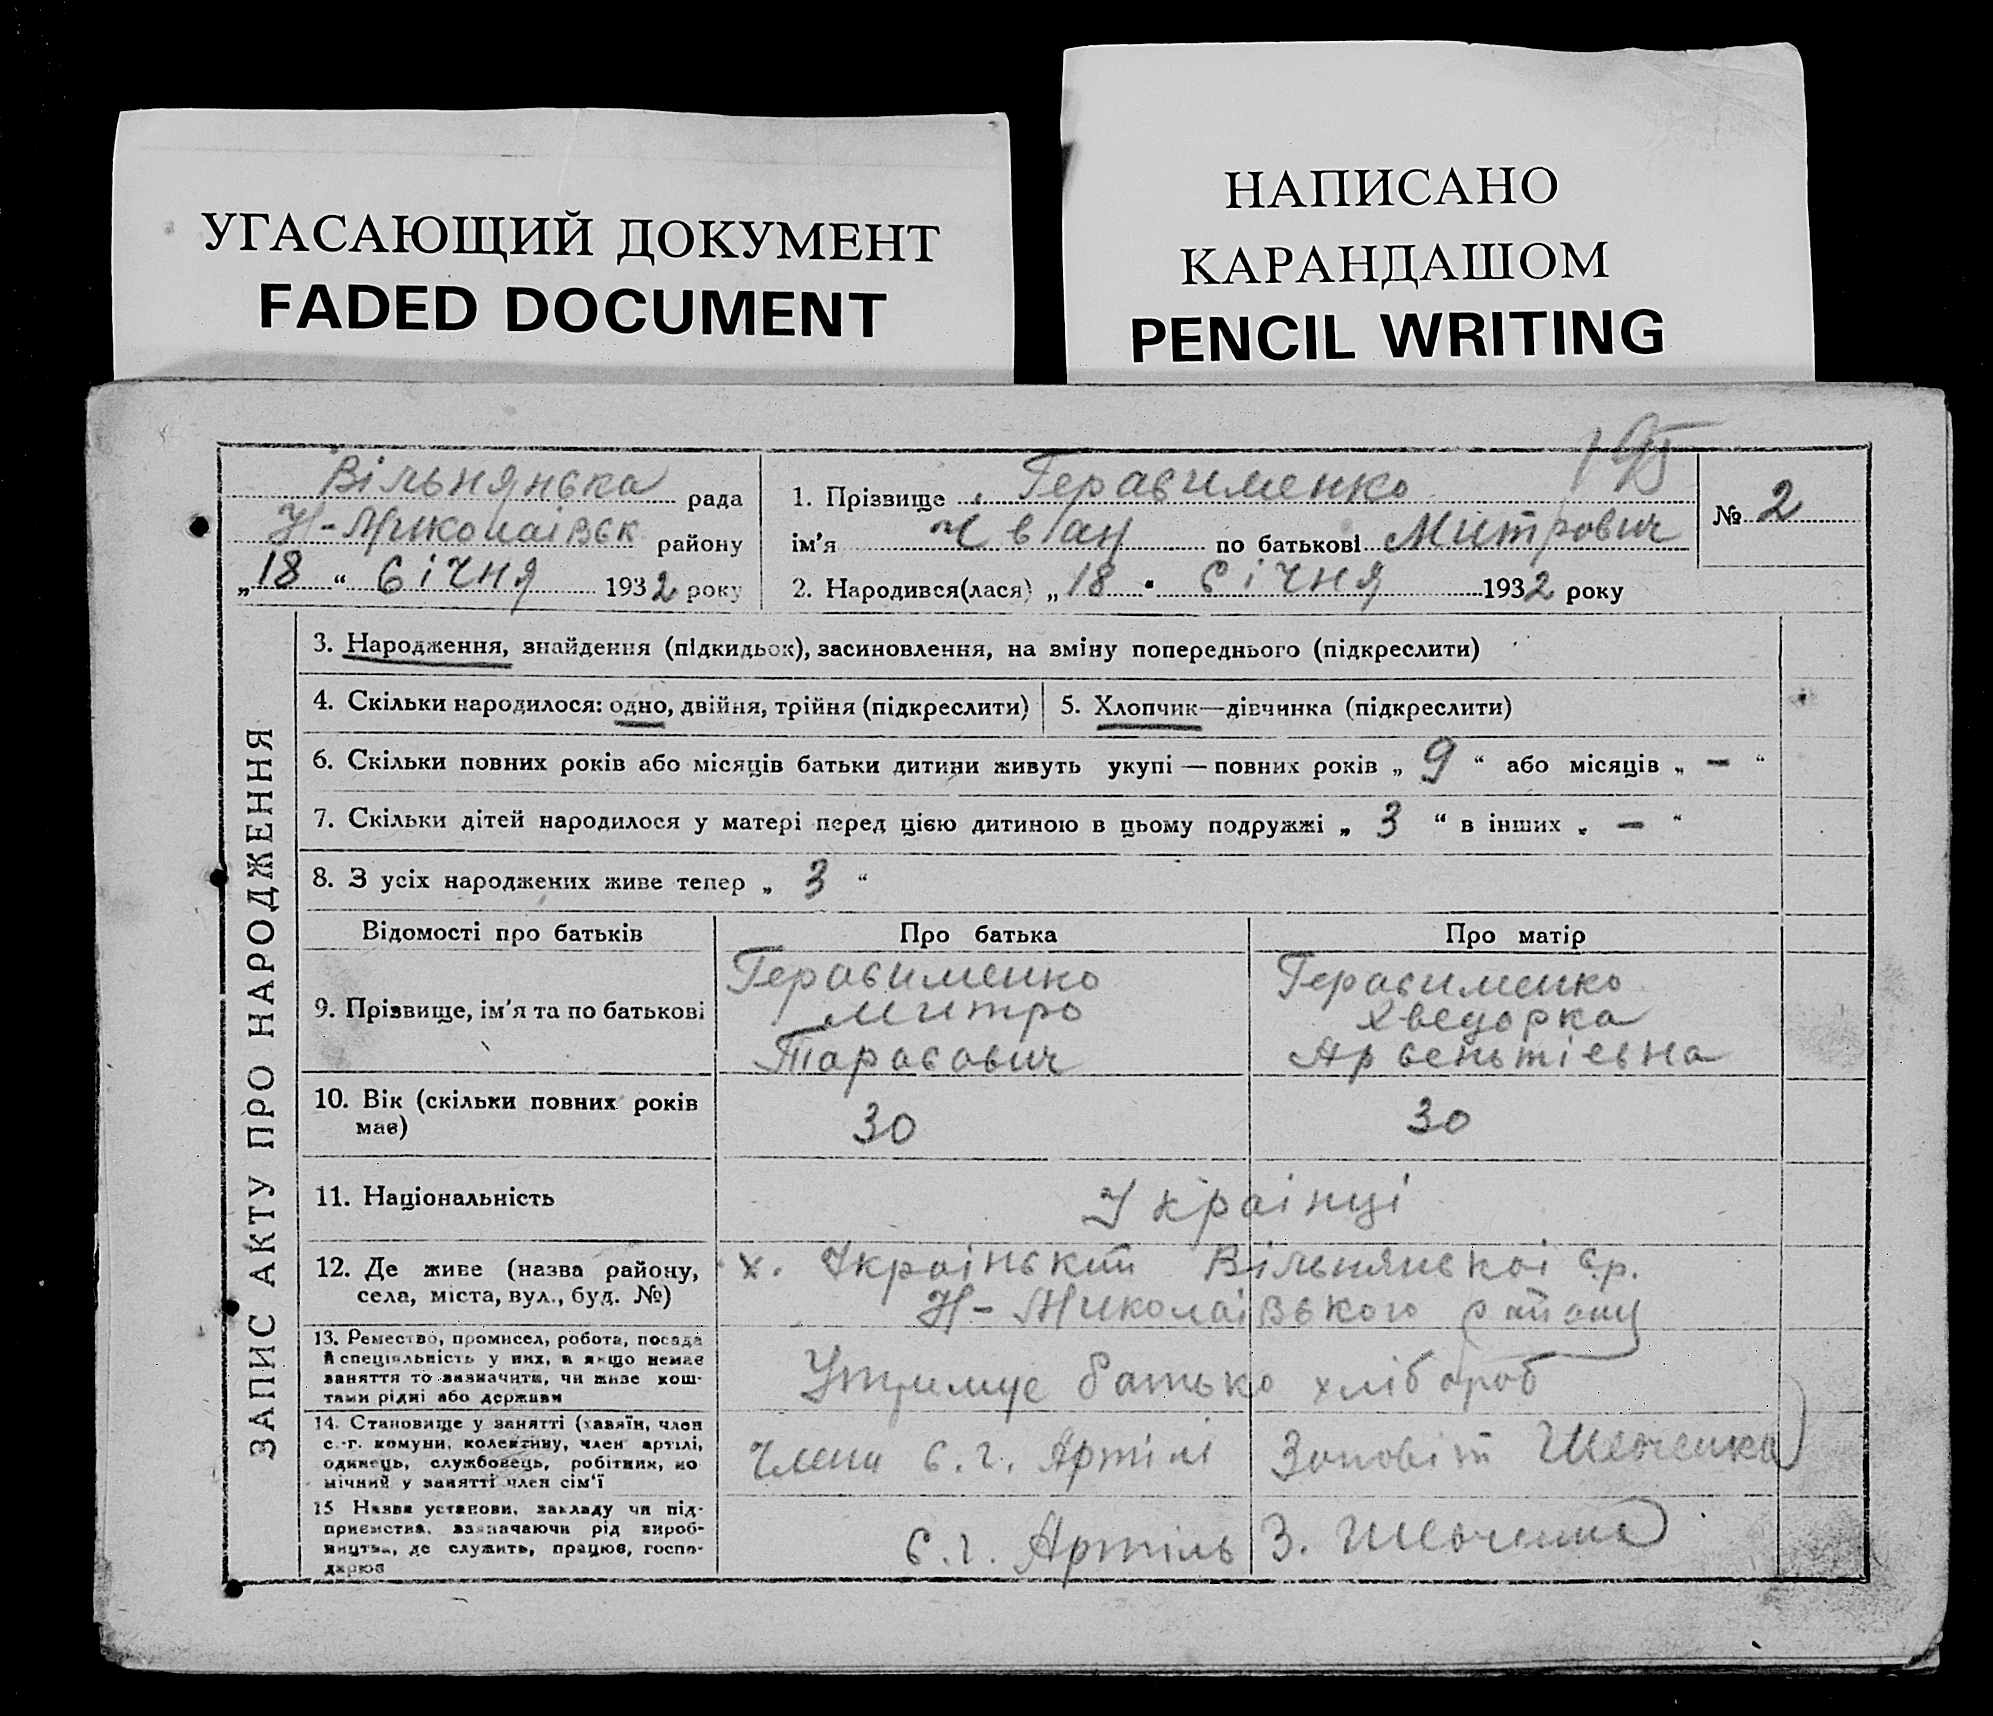 УГАСАЮЩИЙ ДОКУМЕНТ
FADED DOCUMENT
НАПИСАНО
КАРАНДАШОМ
PENCIL WRITING
195
Вільнянська рада
Н-Миколаівськ району
„18“ січня 1932 року
1. Прізвище Герасименко
ім'я Иван по батькові Митрович
2. Народився(лася) „18" січня 1932 року
№ 2
ЗАПИС АКТУ ПРО НАРОДЖЕННЯ
3. Народження, знайдення (підкидьок), засиновлення, на зміну попереднього (підкреслити)
4. Скільки народилося: одно, двійня, трійня (підкреслити)
5. Хлопчик—дівчинка (підкреслити)
6. Скільки повних років або місяців батьки дитини живуть укупі — повних років „ 9 “ або місяців „ — “
7. Скільки дітей народилося у матері перед цією дитиною в цьому подружжі „ 3 “ в інших „ — “
8. З усіх народжених живе тепер „ 3 “
Відомості про батьків
Про батька
Про матір
9. Прізвище, ім'я та по батькові
Герасименко
Митро
Тарасович
Герасименко
Хведорка
Арсеньтіевна
10. Вік (скільки повних років
має)
30
30
11. Національність
Украінці
12. Де живе (назва району,
села, міста, вул., буд. №)
х. Украінський Вільнянськоі с.р.
Н-Миколаівського району
13. Ремество, промисел, робота, посада
й спеціяльність у них, а якщо немає
заняття то зазначити, чи живе кош-
тами рідні або держави
Утримує батько хлібороб
14. Становище у занятті (хазяїн, член
с.-г. комуни, колективу, член артілі,
одинець, службовець, робітник, по
мічний у занятті член сім'ї
Члени с. г. Артілі Заповіт Шевченка
15 Назва установи, закладу чи під-
приємства, зазначаючи рід вироб-
ництва, де служить, працює, госпо-
дарює
с. г. Артіль З. Шевченка